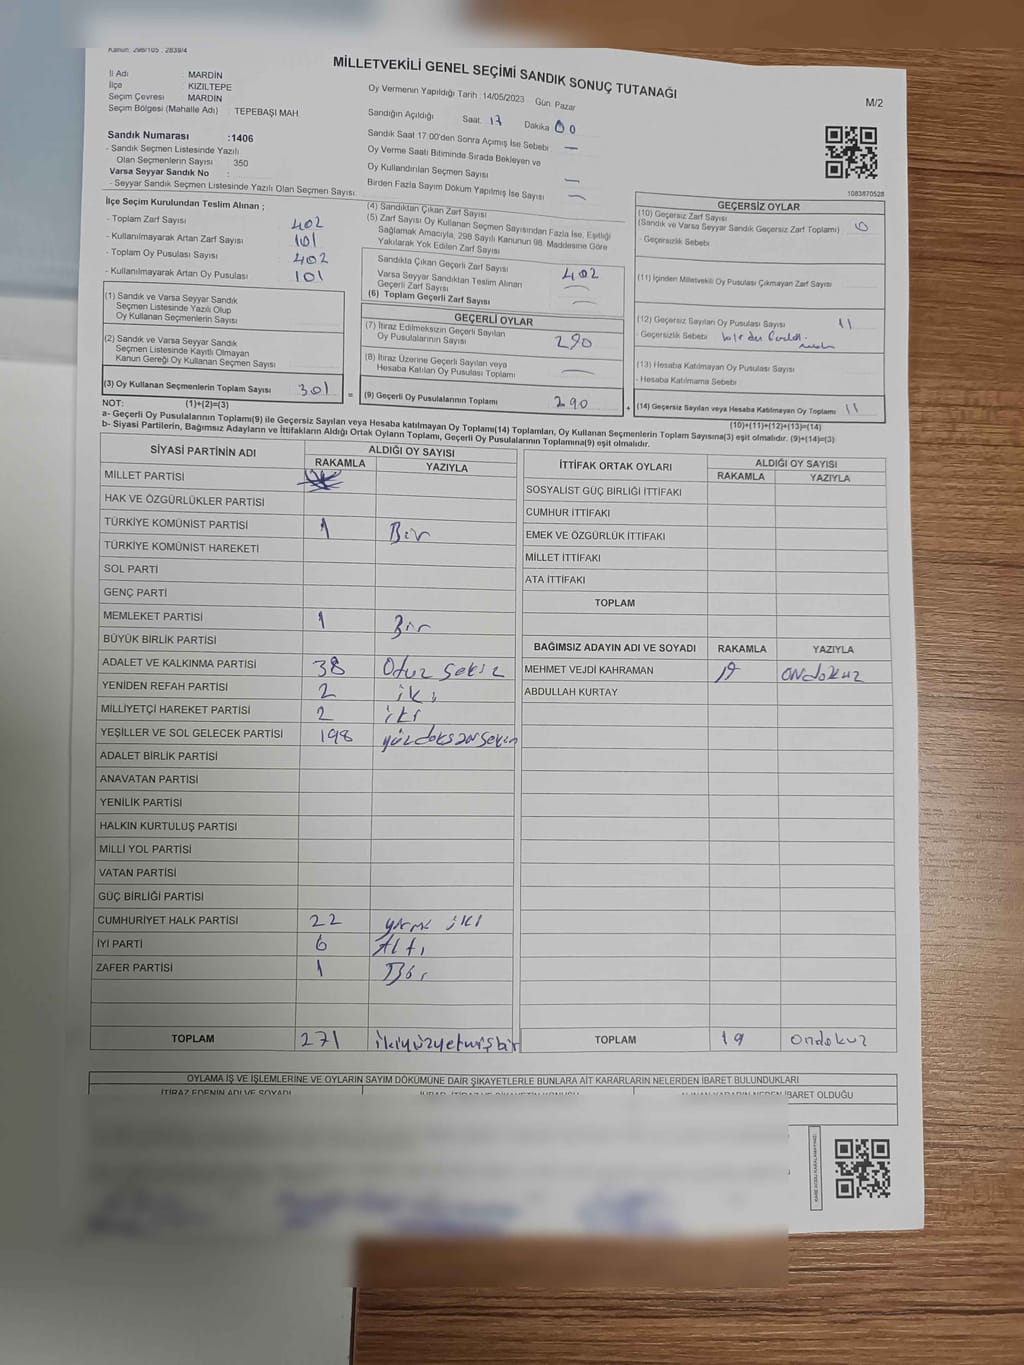 Kanun: 298/105 , 2839/4
MİLLETVEKİLİ GENEL SEÇİMİ SANDIK SONUÇ TUTANAĞI
M/2
İl Adı : MARDİN
İlçe : KIZILTEPE
Seçim Çevresi : MARDİN
Seçim Bölgesi (Mahalle Adı) : TEPEBAŞI MAH
Sandık Numarası :1406
- Sandık Seçmen Listesinde Yazılı
Olan Seçmenlerin Sayısı : 350
Varsa Seyyar Sandık No :
- Seyyar Sandık Seçmen Listesinde Yazılı Olan Seçmen Sayısı:
Oy Vermenin Yapıldığı Tarih :14/05/2023 Gün: Pazar
Sandığın Açıldığı Saat: 17 Dakika 00
Sandık Saat 17.00'den Sonra Açımış İse Sebebi —
Oy Verme Saati Bitiminde Sırada Bekleyen ve
Oy Kullandırılan Seçmen Sayısı —
Birden Fazla Sayım Döküm Yapılmış İse Sayısı —
1083870528
İlçe Seçim Kurulundan Teslim Alınan ;
- Toplam Zarf Sayısı 402
- Kullanılmayarak Artan Zarf Sayısı 101
- Toplam Oy Pusulası Sayısı 402
- Kullanılmayarak Artan Oy Pusulası 101
(1) Sandık ve Varsa Seyyar Sandık
Seçmen Listesinde Yazılı Olup
Oy Kullanan Seçmenlerin Sayısı
(2) Sandık ve Varsa Seyyar Sandık
Seçmen Listesinde Kayıtlı Olmayan
Kanun Gereği Oy Kullanan Seçmen Sayısı
(3) Oy Kullanan Seçmenlerin Toplam Sayısı 301
(4) Sandıktan Çıkan Zarf Sayısı
(5) Zarf Sayısı Oy Kullanan Seçmen Sayısından Fazla İse, Eşitliği
Sağlamak Amacıyla, 298 Sayılı Kanunun 98. Maddesine Göre
Yakılarak Yok Edilen Zarf Sayısı
Sandıkla Çıkan Geçerli Zarf Sayısı 402
Varsa Seyyar Sandıktan Teslim Alınan
Geçerli Zarf Sayısı —
(6) Toplam Geçerli Zarf Sayısı —
GEÇERLİ OYLAR
(7) İtiraz Edilmeksizin Geçerli Sayılan
Oy Pusulalarının Sayısı 290
(8) İtiraz Üzerine Geçerli Sayılan veya
Hesaba Katılan Oy Pusulası Toplamı —
= (9) Geçerli Oy Pusulalarının Toplamı 290
GEÇERSİZ OYLAR
(10) Geçersiz Zarf Sayısı
(Sandık ve Varsa Seyyar Sandık Geçersiz Zarf Toplamı) 0
- Geçersizlik Sebebi
(11) İçinden Milletvekili Oy Pusulası Çıkmayan Zarf Sayısı
(12) Geçersiz Sayılan Oy Pusulası Sayısı 11
- Geçersizlik Sebebi
(13) Hesaba Katılmayan Oy Pusulası Sayısı
- Hesaba Katılmama Sebebi
+ (14) Geçersiz Sayılan veya Hesaba Katılmayan Oy Toplamı 11
NOT: (1)+(2)=(3) (10)+(11)+(12)+(13)=(14)
a- Geçerli Oy Pusulalarının Toplamı(9) ile Geçersiz Sayılan veya Hesaba katılmayan Oy Toplamı(14) Toplamları, Oy Kullanan Seçmenlerin Toplam Sayısına(3) eşit olmalıdır. (9)+(14)=(3)
b- Siyasi Partilerin, Bağımsız Adayların ve İttifakların Aldığı Ortak Oyların Toplamı, Geçerli Oy Pusulalarının Toplamına(9) eşit olmalıdır.
SİYASİ PARTİNİN ADI ALDIĞI OY SAYISI
RAKAMLA YAZIYLA
MİLLET PARTİSİ
HAK VE ÖZGÜRLÜKLER PARTİSİ
TÜRKİYE KOMÜNİST PARTİSİ 1 Bir
TÜRKİYE KOMÜNİST HAREKETİ
SOL PARTİ
GENÇ PARTİ
MEMLEKET PARTİSİ 1 Bir
BÜYÜK BİRLİK PARTİSİ
ADALET VE KALKINMA PARTİSİ 38 Otuz sekiz
YENİDEN REFAH PARTİSİ 2 iki
MİLLİYETÇİ HAREKET PARTİSİ 2 iki
YEŞİLLER VE SOL GELECEK PARTİSİ 198 yüzdoksansekiz
ADALET BİRLİK PARTİSİ
ANAVATAN PARTİSİ
YENİLİK PARTİSİ
HALKIN KURTULUŞ PARTİSİ
MİLLİ YOL PARTİSİ
VATAN PARTİSİ
GÜÇ BİRLİĞİ PARTİSİ
CUMHURİYET HALK PARTİSİ 22 yirmi iki
İYİ PARTİ 6 Altı
ZAFER PARTİSİ 1 Bir
TOPLAM 271 ikiyüzyetmişbir
İTTİFAK ORTAK OYLARI ALDIĞI OY SAYISI
RAKAMLA YAZIYLA
SOSYALİST GÜÇ BİRLİĞİ İTTİFAKI
CUMHUR İTTİFAKI
EMEK VE ÖZGÜRLÜK İTTİFAKI
MİLLET İTTİFAKI
ATA İTTİFAKI
TOPLAM
BAĞIMSIZ ADAYIN ADI VE SOYADI RAKAMLA YAZIYLA
MEHMET VEJDİ KAHRAMAN 19 ondokuz
ABDULLAH KURTAY
TOPLAM 19 ondokuz
OYLAMA İŞ VE İŞLEMLERİNE VE OYLARIN SAYIM DÖKÜMÜNE DAİR ŞİKAYETLERLE BUNLARA AİT KARARLARIN NELERDEN İBARET BULUNDUKLARI
İTİRAZ EDENİN ADI VE SOYADI
İBARET OLDUĞU